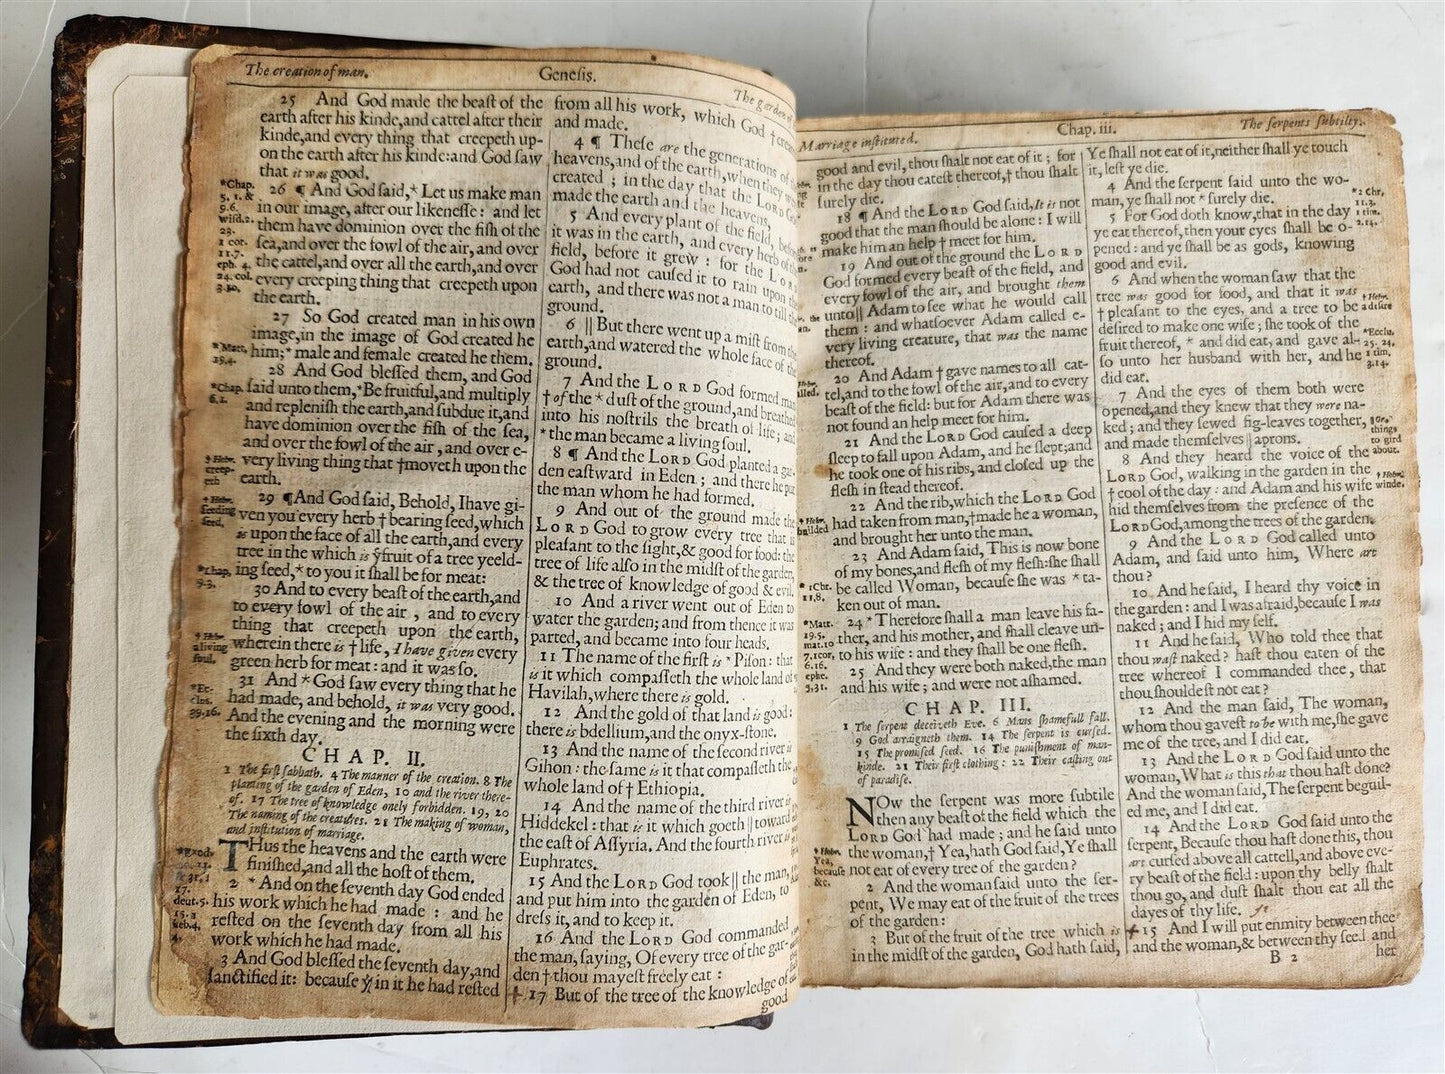 The creation of man.
Genesis.
The garden of
25 And God made the beast of the
earth after his kinde,and cattel after their
kinde,and every thing that creepeth up-
on the earth after his kinde:and God saw
that it was good.
26 ¶ And God said,* Let us make man
in our image, after our likenesse: and let
them have dominion over the fish of the
sea,and over the fowl of the air, and over
the cattel,and over all the earth,and over
every creeping thing that creepeth upon
the earth.
27 So God created man in his own
image,in the image of God created he
him;* male and female created he them.
28 And God blessed them, and God
said unto them,*Be fruitful,and multiply
and replenish the earth,and subdue it,and
have dominion over the fish of the sea,
and over the fowl of the air, and over e-
very living thing that †moveth upon the
earth.
29 ¶And God said, Behold, I have gi-
ven you every herb † bearing seed,which
is upon the face of all the earth,and every
tree in the which is yͤ fruit of a tree yeeld-
ing seed,* to you it shall be for meat:
30 And to every beast of the earth,and
to every fowl of the air, and to every
thing that creepeth upon the earth,
wherein there is † life, I have given every
green herb for meat: and it was so.
31 And * God saw every thing that he
had made, and behold, it was very good.
And the evening and the morning were
the sixth day.
CHAP. II.
1 The first sabbath. 4 The manner of the creation. 8 The
planting of the garden of Eden, 10 and the river there-
of. 17 The tree of knowledge onely forbidden. 19, 20
The naming of the creatures. 21 The making of woman,
and institution of marriage.
THus the heavens and the earth were
finished,and all the host of them.
2 * And on the seventh day God ended
his work which he had made : and he
rested on the seventh day from all his
work which he had made.
3 And God blessed the seventh day,and
sanctified it: because yͭ in it he had rested
*Chap.
5. 1. &
9.6.
wisd.2.
23.
1 cor.
11.7.
eph. 4.
24. col.
3.10.
*Matt.
19.4.
*Chap.
† Hebr.
creep-
eth
† Hebr.
seeding
seed.
*Chap.
9.3.
† Hebr.
a living
soul.
*Ec-
clus.
39.16.
deut.5.
from all his work, which God † created
and made.
4 ¶ These are the generations of the
heavens,and of the earth,when they were
created ; in the day that the LORD God
made the earth and the heavens,
5 And every plant of the field, before
it was in the earth, and every herb of the
field, before it grew : for the LORD
God had not caused it to rain upon the
earth, and there was not a man to till the
ground.
6 || But there went up a mist from the
earth,and watered the whole face of the
ground.
7 And the LORD God formed man
† of the * dust of the ground,and breathed
into his nostrils the breath of life; and
*the man became a living soul.
8 ¶ And the LORD God planted a gar-
den eastward in Eden ; and there he put
the man whom he had formed.
9 And out of the ground made the
LORD God to grow every tree that is
pleasant to the sight,& good for food: the
tree of life also in the midst of the garden,
& the tree of knowledge of good & evil.
10 And a river went out of Eden to
water the garden; and from thence it was
parted, and became into four heads.
11 The name of the first is * Pison: that
is it which compasseth the whole land of
Havilah,where there is gold.
12 And the gold of that land is good:
there is bdellium,and the onyx-stone.
13 And the name of the second river is
Gihon : the same is it that compasseth the
whole land of † Ethiopia.
14 And the name of the third river is
Hiddekel : that is it which goeth || toward
the east of Assyria. And the fourth river is
Euphrates.
15 And the LORD God took || the man,
and put him into the garden of Eden, to
dress it,and to keep it.
16 And the LORD God commanded
the man, saying, Of every tree of the gar-
den † thou mayest freely eat :
17 But of the tree of the knowledge of
good
Marriage instituted.
Chap. iii.
The serpents subtilty.
good and evil, thou shalt not eat of it ; for
in the day thou eatest thereof,† thou shalt
surely die.
18 ¶ And the LORD God said,It is not
good that the man should be alone : I will
make him an help † meet for him.
19 And out of the ground the LORD
God formed every beast of the field, and
every fowl of the air, and brought them
unto || Adam to see what he would call
them : and whatsoever Adam called e-
very living creature, that was the name
thereof.
20 And Adam † gave names to all cat-
tel,and to the fowl of the air,and to every
beast of the field: but for Adam there was
not found an help meet for him.
21 And the LORD God caused a deep
sleep to fall upon Adam, and he slept;and
he took one of his ribs, and closed up the
flesh in stead thereof.
22 And the rib,which the LORD God
had taken from man,†made he a woman,
and brought her unto the man.
23 And Adam said, This is now bone
of my bones,and flesh of my flesh:she shall
be called Woman, because she was * ta-
ken out of man.
24 * Therefore shall a man leave his fa-
ther, and his mother, and shall cleave un-
to his wife : and they shall be one flesh.
25 And they were both naked,the man
and his wife ; and were not ashamed.
CHAP. III.
1 The serpent deceiveth Eve. 6 Mans shamefull fall.
9 God arraigneth them. 14 The serpent is cursed.
15 The promised seed. 16 The punishment of man-
kinde. 21 Their first clothing : 22 Their casting out
of paradise.
NOw the serpent was more subtile
then any beast of the field which the
LORD God had made ; and he said unto
the woman,† Yea,hath God said,Ye shall
not eat of every tree of the garden?
2 And the woman said unto the ser-
pent, We may eat of the fruit of the trees
of the garden:
3 But of the fruit of the tree which is
in the midst of the garden, God hath said,
† Hebr.
builded
* 1 Cor.
11,8.
*Matt.
19.5.
mar.10
7.1cor.
6.16.
ephe.
5.31.
† Hebr.
Yea,
because
&c.
Ye shall not eat of it,neither shall ye touch
it, lest ye die.
4 And the serpent said unto the wo-
man, ye shall not * surely die.
5 For God doth know,that in the day
ye eat thereof,then your eyes shall be o-
pened : and ye shall be as gods, knowing
good and evil.
6 And when the woman saw that the
tree was good for food, and that it was
† pleasant to the eyes, and a tree to be
desired to make one wise ; she took of the
fruit thereof, * and did eat, and gave al-
so unto her husband with her, and he
did eat.
7 And the eyes of them both were
opened,and they knew that they were na-
ked ; and they sewed fig-leaves together,
and made themselves || aprons.
8 And they heard the voice of the
LORD God, walking in the garden in the
† cool of the day : and Adam and his wife
hid themselves from the presence of the
LORD God,among the trees of the garden.
9 And the LORD God called unto
Adam, and said unto him, Where art
thou?
10 And he said, I heard thy voice in
the garden : and I was afraid,because I was
naked ; and I hid my self.
11 And he said, Who told thee that
thou wast naked? hast thou eaten of the
tree whereof I commanded thee, that
thou shouldest not eat?
12 And the man said, The woman,
whom thou gavest to be with me,she gave
me of the tree, and I did eat.
13 And the LORD God said unto the
woman,What is this that thou hast done?
And the woman said,The serpent beguil-
ed me, and I did eat.
14 And the LORD God said unto the
serpent, Because thou hast done this, thou
art cursed above all cattell, and above eve-
ry beast of the field : upon thy belly shalt
thou go, and dust shalt thou eat all the
dayes of thy life.
15 And I will put enmity between thee
and the woman,& between thy seed and
B 2
her
*2 Cor,
11.3.
1 tim.
2.14.
† Hebr.
a desire
*Ecclu.
25. 24.
1 tim.
3.14.
|| Or,
things
to gird
about.
† Hebr.
winde.